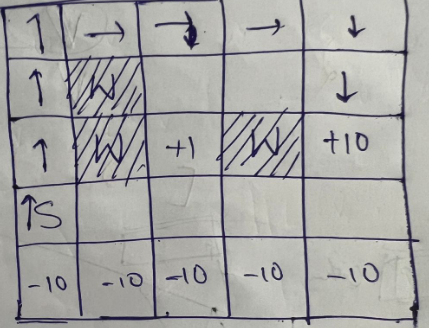 ↑ → ↴ → ↓
↑ W ↓
↑ W +1 W +10
↑S
-10 -10 -10 -10 -10